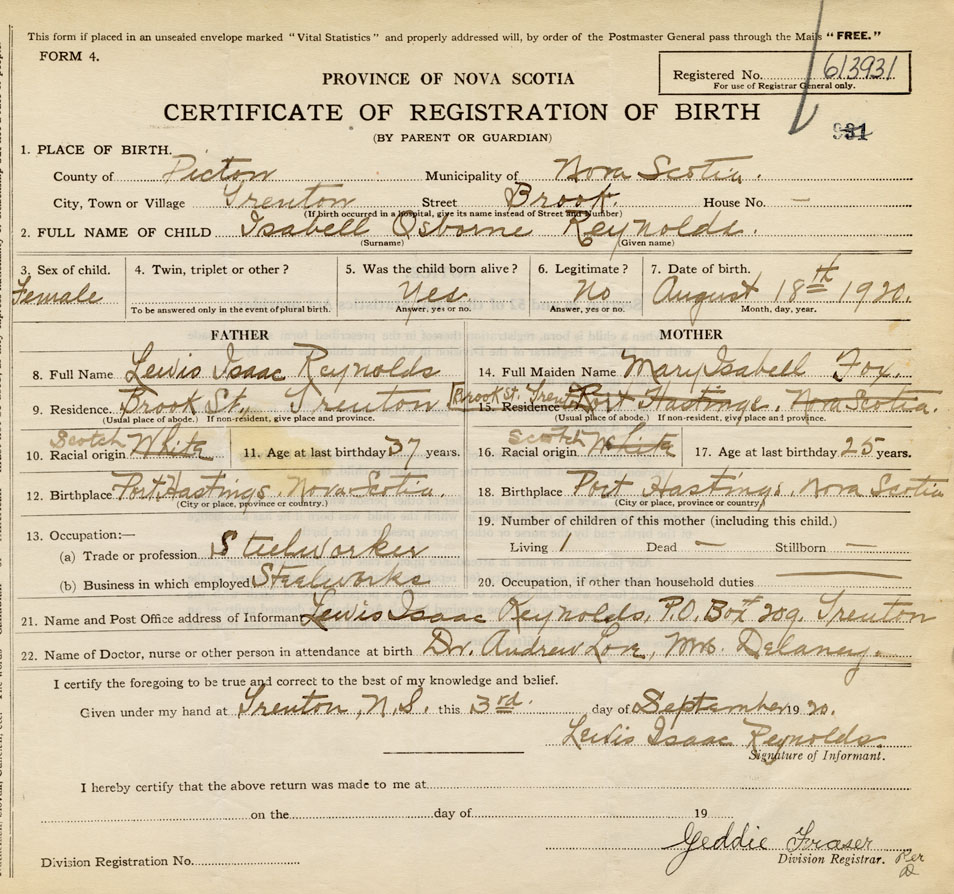 This form if placed in an unsealed envelope marked "Vital Statistics" and properly addressed will, by order of the Postmaster General pass through the Mails "FREE."
FORM 4.
PROVINCE OF NOVA SCOTIA
Registered No. 613931
For use of Registrar General only.
CERTIFICATE OF REGISTRATION OF BIRTH
(BY PARENT OR GUARDIAN)
931
1. PLACE OF BIRTH.
County of Picton Municipality of Nova Scotia.
City, Town or Village Trenton Street Brook. House No. —
(If birth occurred in a hospital, give its name instead of Street and Number)
2. FULL NAME OF CHILD Isabell Osborne Reynolds.
(Surname) (Given name)
3. Sex of child. 4. Twin, triplet or other? 5. Was the child born alive? 6. Legitimate? 7. Date of birth.
Female Yes No August 18th 1920.
To be answered only in the event of plural birth. Answer, yes or no. Answer, yes or no. Month, day, year.
FATHER MOTHER
8. Full Name Lewis Isaac Reynolds 14. Full Maiden Name Mary Isabell Fox.
9. Residence. Brook St., Trenton Brook St. Trenton 15. Residence Port Hastings, Nova Scotia.
(Usual place of abode.) If non-resident, give place and province. (Usual place of abode.) If non-resident, give place and province.
Scotch Scotch
10. Racial origin White 11. Age at last birthday 37 years. 16. Racial origin White 17. Age at last birthday 25 years.
12. Birthplace Port Hastings, Nova Scotia. 18. Birthplace Port Hastings, Nova Scotia
(City or place, province or country.) (City or place, province or country)
13. Occupation:— 19. Number of children of this mother (including this child.)
(a) Trade or profession Steelworker Living 1 Dead — Stillborn —
(b) Business in which employed Steelworks 20. Occupation, if other than household duties
21. Name and Post Office address of Informant Lewis Isaac Reynolds, P.O. Box 209. Trenton
22. Name of Doctor, nurse or other person in attendance at birth Dr. Andrew Love, Mrs. Delaney.
I certify the foregoing to be true and correct to the best of my knowledge and belief.
Given under my hand at Trenton, N.S. this 3rd. day of September 1920.
Lewis Isaac Reynolds.
Signature of Informant.
I hereby certify that the above return was made to me at
on the day of 19
Geddie Fraser
Division Registration No. Division Registrar. Per